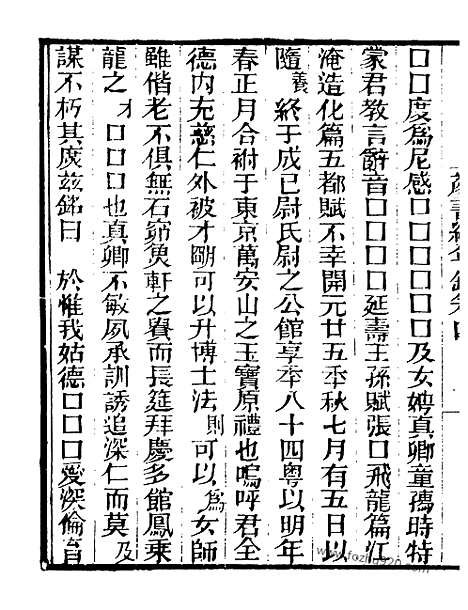 囗囗度爲尼感囗囗囗囗囗囗囗及女娉真卿童孺時特
蒙君教言辭音囗囗囗囗延壽王孫賦張囗飛龍篇江
淹造化篇五都賦不幸開元廿五秊秋七月有五日以
隨義終于成巳尉氏尉之公館享秊八十四粵以明年
春正月合祔于東京萬安山之玉寶原禮也嗚呼君全
德内充慈仁外被才朙可以升博士法則可以爲女師
雖偕老不俱無石窌魚軒之賚而長筵拜慶多館鳳乘
龍之才囗囗囗也真卿不敏夙承訓誘追深仁而莫及
謀不朽其庶茲銘曰 於惟我姑德囗囗囗愛深倫育
www.fozhu920.com